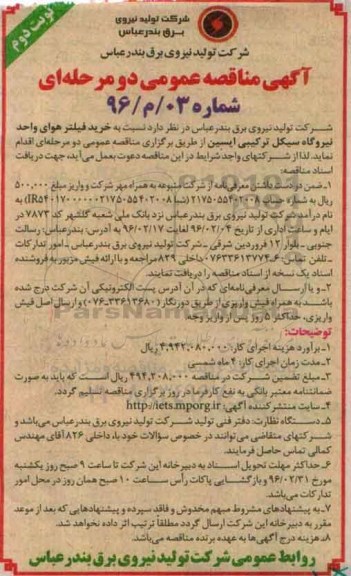 نوبت دوم
شرکت تولید نیروی
برق بندرعباس
شرکت تولید نیروی برق بندرعباس
آگهی مناقصه عمومی دو مرحله‌ای
شماره ۹۶/م/۰۳
شرکت تولید نیروی برق بندرعباس در نظر دارد نسبت به خرید فیلتر هوای واحد
نیروگاه سیکل ترکیبی ایسین از طریق برگزاری مناقصه عمومی دو مرحله‌ای اقدام
نماید. لذا از شرکتهای واجد شرایط در این مناقصه دعوت بعمل می‌آید، جهت دریافت
اسناد مناقصه:
۱ـ ضمن در دست داشتن معرفی‌نامه از شرکت متبوعه به همراه مهر شرکت و واریز مبلغ ۵۰۰,۰۰۰
ریال به شماره حساب ۲۱۷۵۰۵۵۴۰۲۰۰۸ (شبا IR۵۴۰۱۷۰۰۰۰۰۰۲۱۷۵۰۵۵۴۰۲۰۰۸) به
نام درآمد شرکت تولید نیروی برق بندرعباس نزد بانک ملی شعبه گلشهر کد ۷۸۷۳ در
ایام و ساعت اداری از تاریخ ۹۶/۰۲/۰۴ لغایت ۹۶/۰۲/۱۷ به آدرس: بندرعباس: رسالت
جنوبی ـ بلوار ۱۲ فروردین شرقی ـ شرکت تولید نیروی برق بندرعباس ـ امور تدارکات
ـ تلفن تماس ۶ـ۰۷۶۳۳۶۱۳۷۷۴ داخلی ۸۳۹ مراجعه و با ارائه فیش مزبور به فروشنده
اسناد یک نسخه از اسناد مناقصه را دریافت نمایند.
۲ـ و یا ارسال معرفی‌نامه‌ای که در آن آدرس پست الکترونیکی آن شرکت درج شده
باشد به همراه فیش واریزی از طریق دورنگار (۳۳۶۱۳۶۸۰ـ۰۷۶) و ارسال اصل فیش
واریزی، حداکثر ۵ روز پس از واریز وجه
توضیحات:
۱ـ برآورد هزینه اجرای کار: ۴,۹۴۲,۰۸۰,۰۰۰ ریال
۲ـ مدت زمان اجرای کار: ۴ ماه شمسی
۳ـ مبلغ تضمین شرکت در مناقصه ۴۹۴,۲۰۸,۰۰۰ ریال است که باید به صورت
ضمانتنامه معتبر بانکی به نفع کارفرما در روز برگزاری مناقصه تسلیم گردد.
۴ـ سایت منتشر کننده آگهی: http://iets.mporg.ir
۵ـ دستگاه نظارت: دفتر فنی تولید شرکت تولید نیروی برق بندرعباس می‌باشد و
شرکتهای متقاضی می‌توانند در خصوص سؤالات خود با داخلی ۸۲۶ آقای مهندس
کمالی تماس حاصل فرمایند.
۶ـ حداکثر مهلت تحویل اسناد به دبیرخانه این شرکت تا ساعت ۹ صبح روز یکشنبه
مورخ ۹۶/۰۲/۳۱ و بازگشایی پاکات رأس ساعت ۱۰ صبح همان روز در محل امور
تدارکات می‌باشد.
۷ـ به پیشنهادهای مشروط مبهم مخدوش و فاقد سپرده و پیشنهادهایی که بعد از موعد
مقرر به دبیرخانه این شرکت ارسال گردد مطلقاً ترتیب اثر داده نخواهد شد.
۸ـ هزینه درج آگهی‌ها به عهده برنده مناقصه می‌باشد.
روابط عمومی شرکت تولید نیروی برق بندرعباس